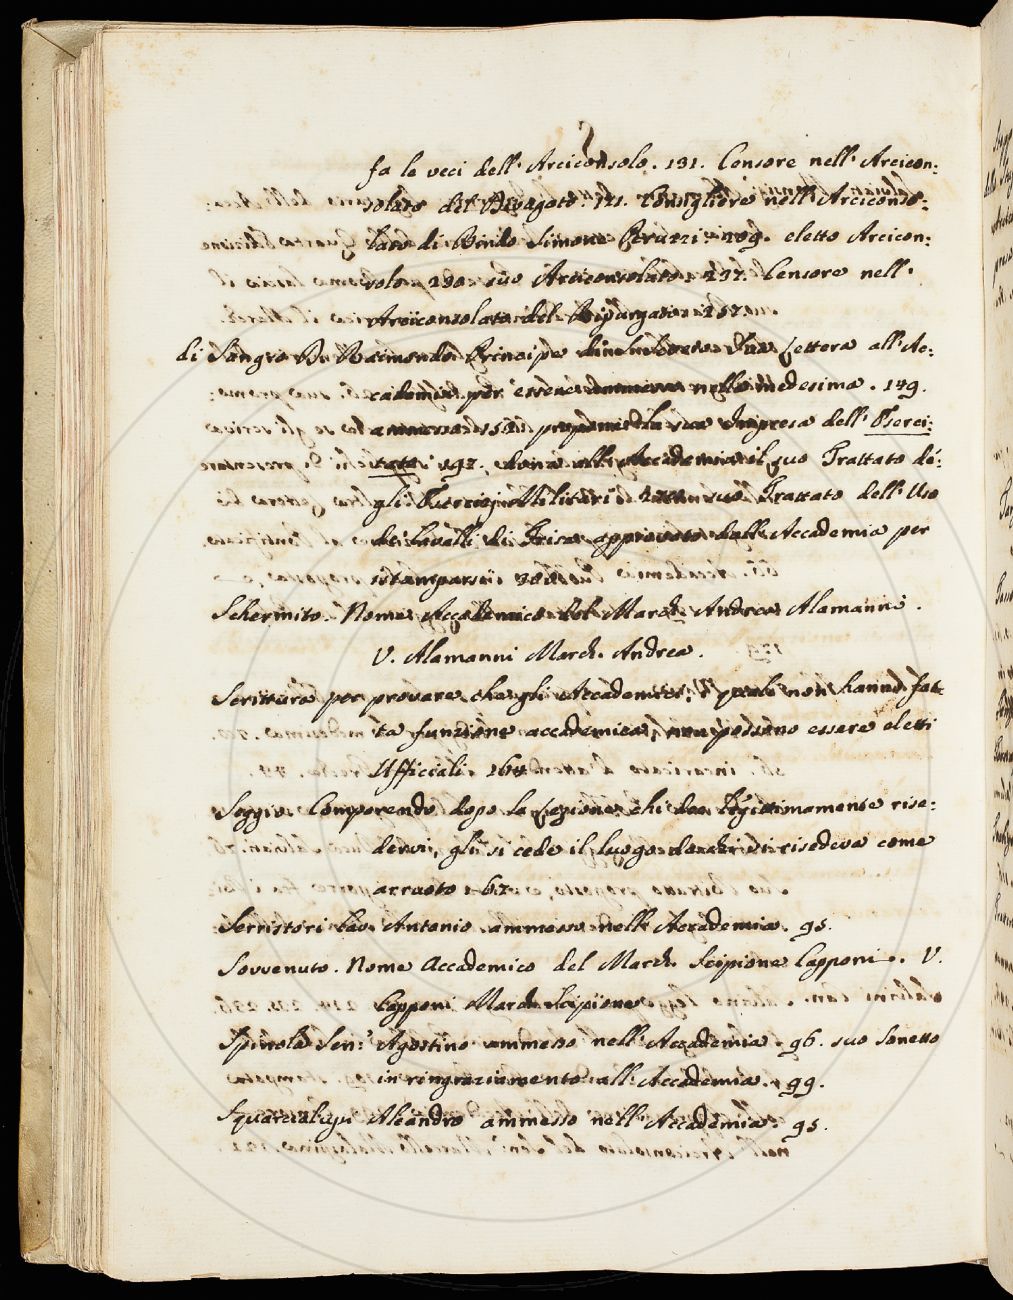 S
fa le veci dell' Arciconsolo. 131. Censore nell' Arcicon:
solato del Ripurgato. 121. Consigliere nell' Arciconso:
lato di Bindo Simone Peruzzi. 209. eletto Arcicon:
solo 230. suo Arciconsolato. 237. Censore nell'
Arciconsolato del Ripurgato. 267.
di Sangro D. Raimondo Principe di sua Lettera all' Ac:
cademia per essere ammesso nella medesima. 149.
ammesso 151. la sua Impresa dell' Eserci:
tato 192. dona all' Accademia il suo Trattato de:
gli Esercizj Militari suo Trattato dell' Uso
de Cavalli di Frisa approvato dall' Accademia per
stamparsi
Schermito. Nome Accademico del March. Andrea Alamanni.
V. Alamanni March. Andrea.
Scrittura per provare che gli Accademici, i quali non hanno fat:
ta funzione accademica, non possono essere eletti
Uffiziali. 164.
Seggio. Comparendo dopo la Lezione chi dee legittimamente rise:
dervi, gli si cede il luogo da chi vi risedeva come
arruoto. 67.
Serristori Cav. Antonio ammesso nell' Accademia. 95.
Sovvenuto. Nome Accademico del March. Scipione Capponi. V.
Capponi March. Scipione
Spinola Sen: Agostino ammesso nell' Accademia. 96. suo Sonetto
in ringraziamento all' Accademia. 99.
Squarcialupi Aleandro ammesso nell' Accademia. 95.